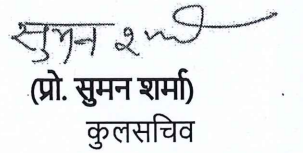 सुमन शर्मा
(प्रो. सुमन शर्मा)
कुलसचिव